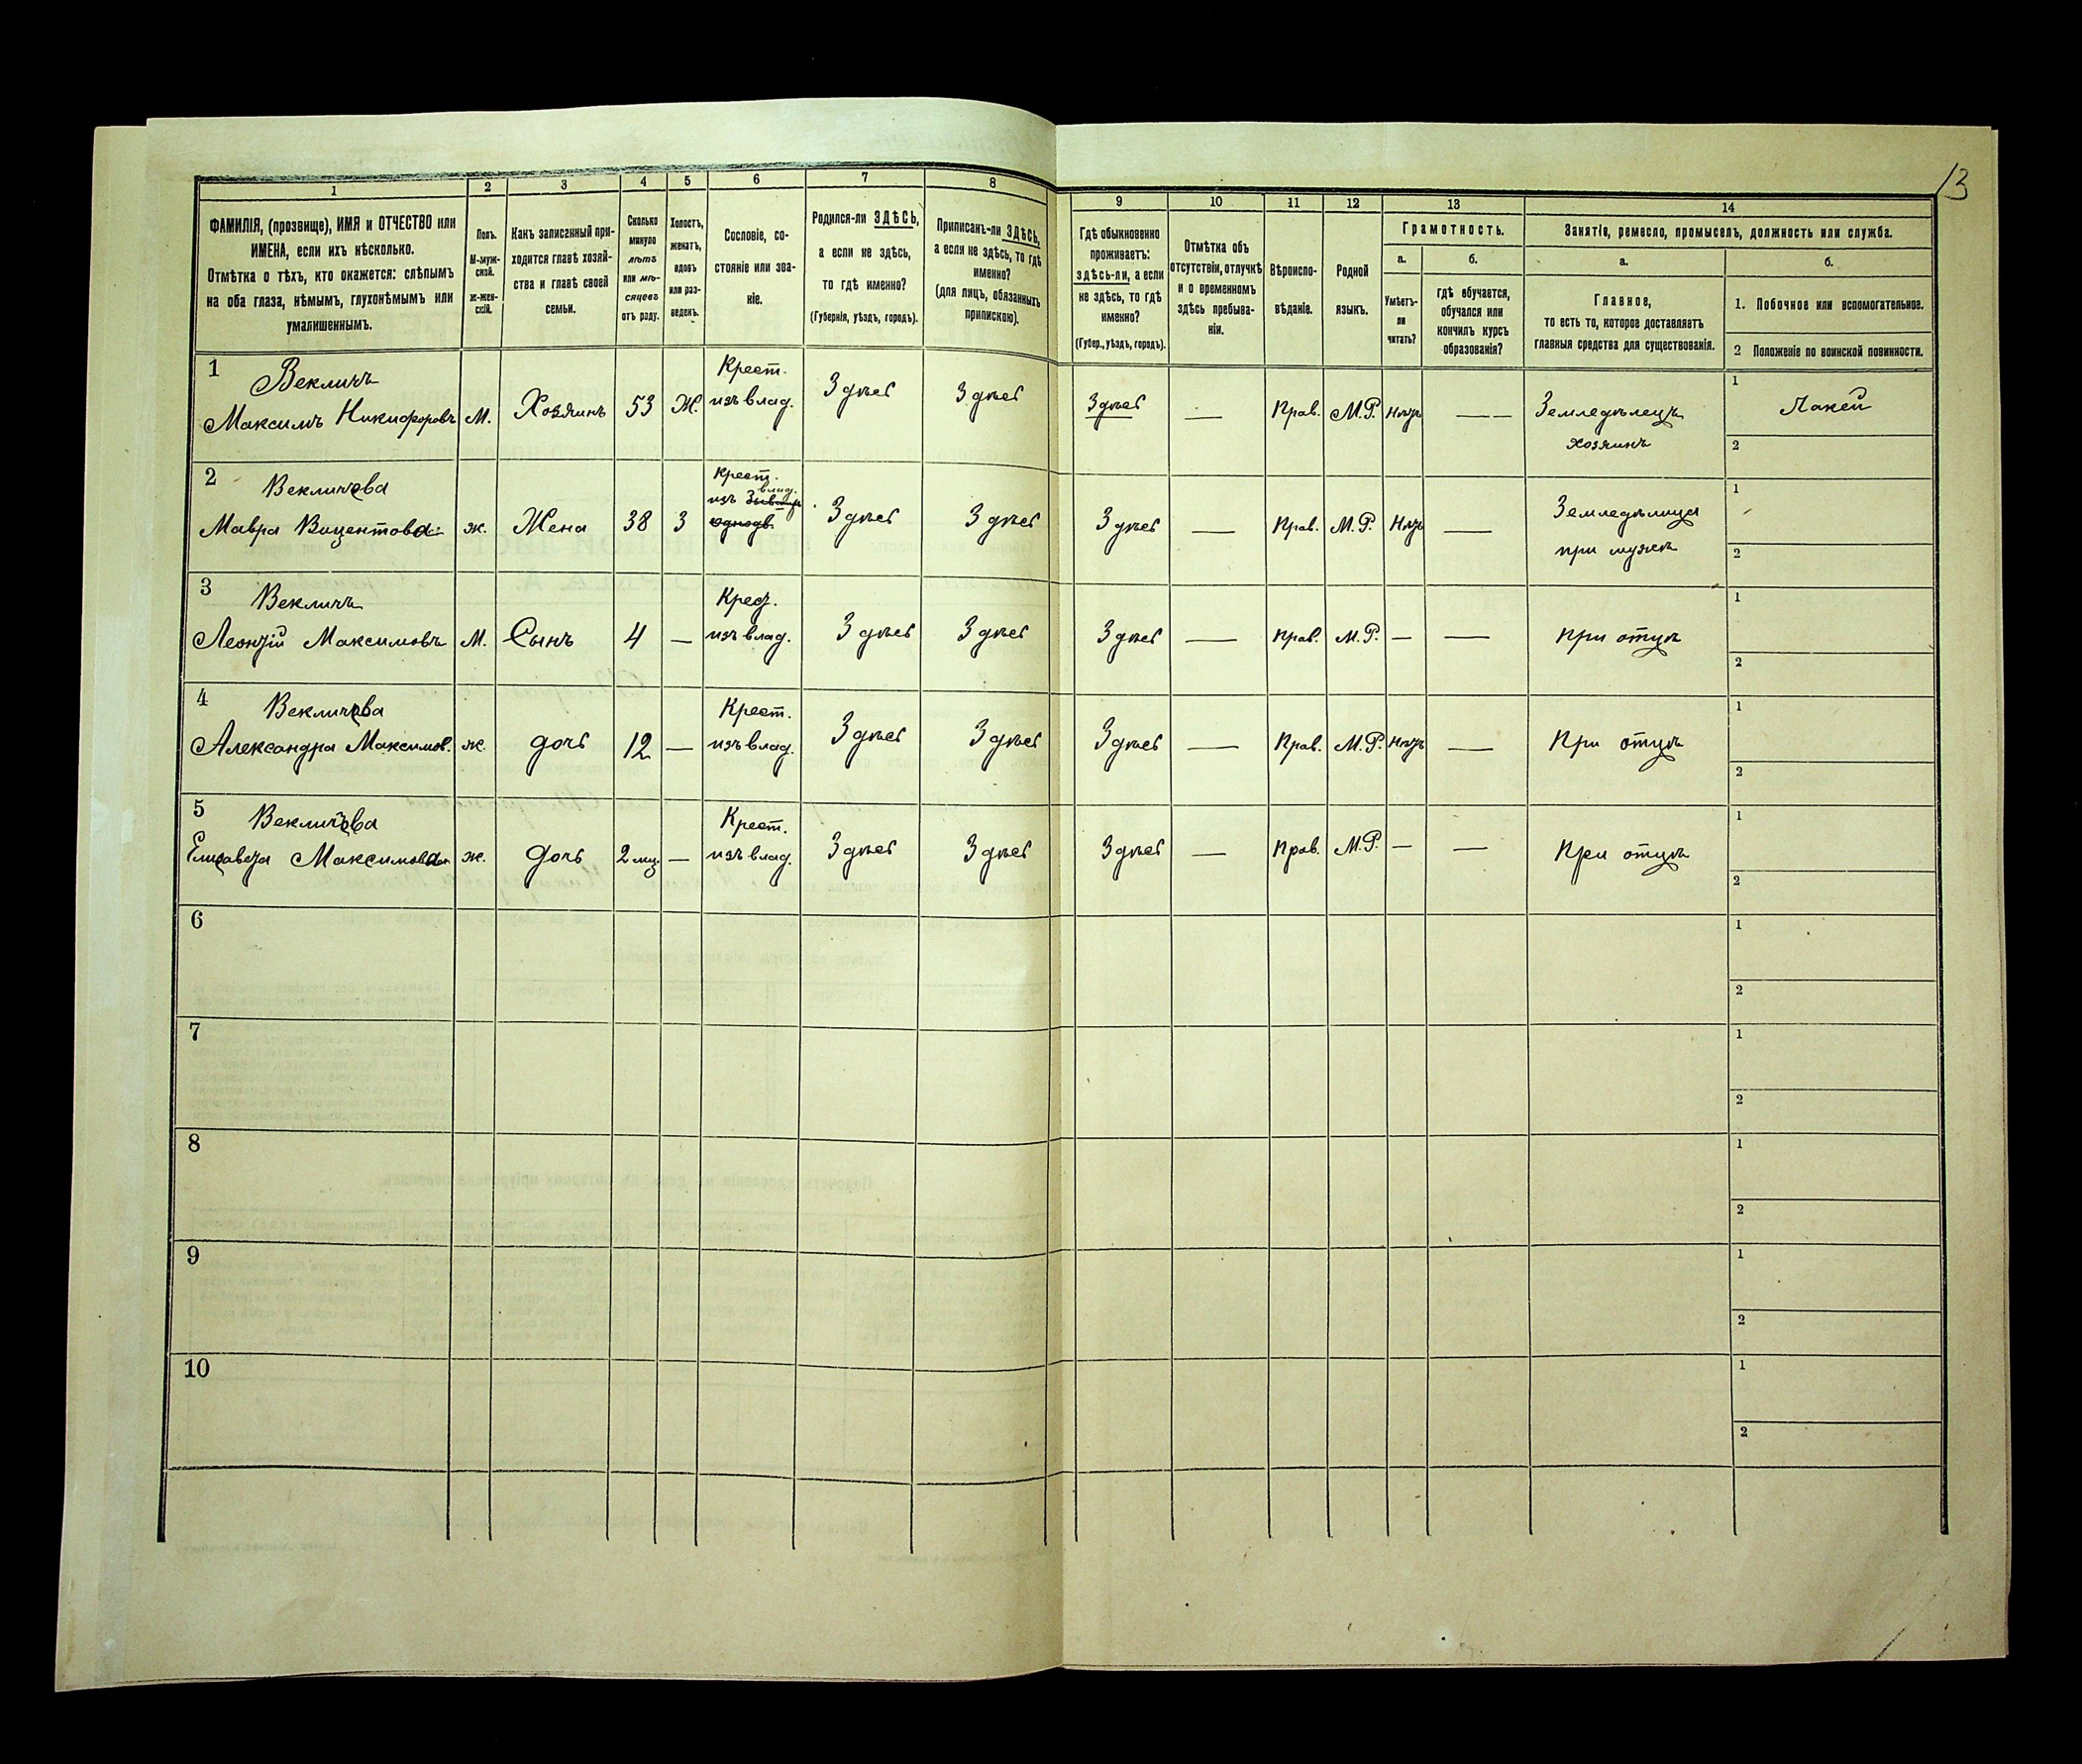 13
1 2 3 4 5 6 7 8 9 10 11 12 13 14
ФАМИЛІЯ, (прозвище), ИМЯ и ОТЧЕСТВО или
ИМЕНА, если ихъ нѣсколько.
Отмѣтка о тѣхъ, кто окажется: слѣпымъ
на оба глаза, нѣмымъ, глухонѣмымъ или
умалишеннымъ.
Полъ.
М-муж-
ской.
ж-жен-
скій.
Какъ записанный при-
ходится главѣ хозяй-
ства и главѣ своей
семьи.
Сколько
минуло
лѣтъ
или мѣ-
сяцевъ
отъ роду.
Холостъ,
женатъ,
вдовъ
или раз-
веденъ.
Сословіе, со-
стояніе или зва-
ніе.
Родился-ли ЗДѢСЬ,
а если не здѣсь,
то гдѣ именно?
(Губернія, уѣздъ, городъ).
Приписанъ-ли ЗДѢСЬ,
а если не здѣсь, то гдѣ
именно?
(для лицъ, обязанныхъ
припискою).
Гдѣ обыкновенно
проживаетъ:
здѣсь-ли, а если
не здѣсь, то гдѣ
именно?
(Губер., уѣздъ, городъ).
Отмѣтка объ
отсутствіи, отлучкѣ
и о временномъ
здѣсь пребыва-
ніи.
Вѣроиспо-
вѣданіе.
Родной
языкъ.
Грамотность.
а.
Умѣетъ-
ли
читать?
б.
гдѣ обучается,
обучался или
кончилъ курсъ
образованія?
Занятіе, ремесло, промыселъ, должность или служба.
а.
Главное,
то есть то, которое доставляетъ
главныя средства для существованія.
б.
1. Побочное или вспомогательное.
2 Положеніе по воинской повинности.
1 Векличъ
Максимъ Никифоровъ М. Хозяинъ 53 Ж. Крест. изъ влад. Здѣсь Здѣсь Здѣсь — Прав. М.Р. Нѣтъ — Земледѣлецъ хозяинъ 1 Лакей
2
2 Векличева
Мавра Вицентова ж. Жена 38 З Крест. изъ влад. Здѣсь Здѣсь Здѣсь — Прав. М.Р. Нѣтъ — Земледѣлица при мужѣ 1
2
3 Векличъ
Леонтій Максимовъ М. Сынъ 4 — Крест. изъ влад. Здѣсь Здѣсь Здѣсь — Прав. М.Р. — — при отцѣ 1
2
4 Векличева
Александра Максимов. ж. дочь 12 — Крест. изъ влад. Здѣсь Здѣсь Здѣсь — Прав. М.Р. Нѣтъ — При отцѣ 1
2
5 Векличева
Елизавета Максимова ж. дочь 2 мц. — Крест. изъ влад. Здѣсь Здѣсь Здѣсь — Прав. М.Р. — — При отцѣ 1
2
6 1
2
7 1
2
8 1
2
9 1
2
10 1
2